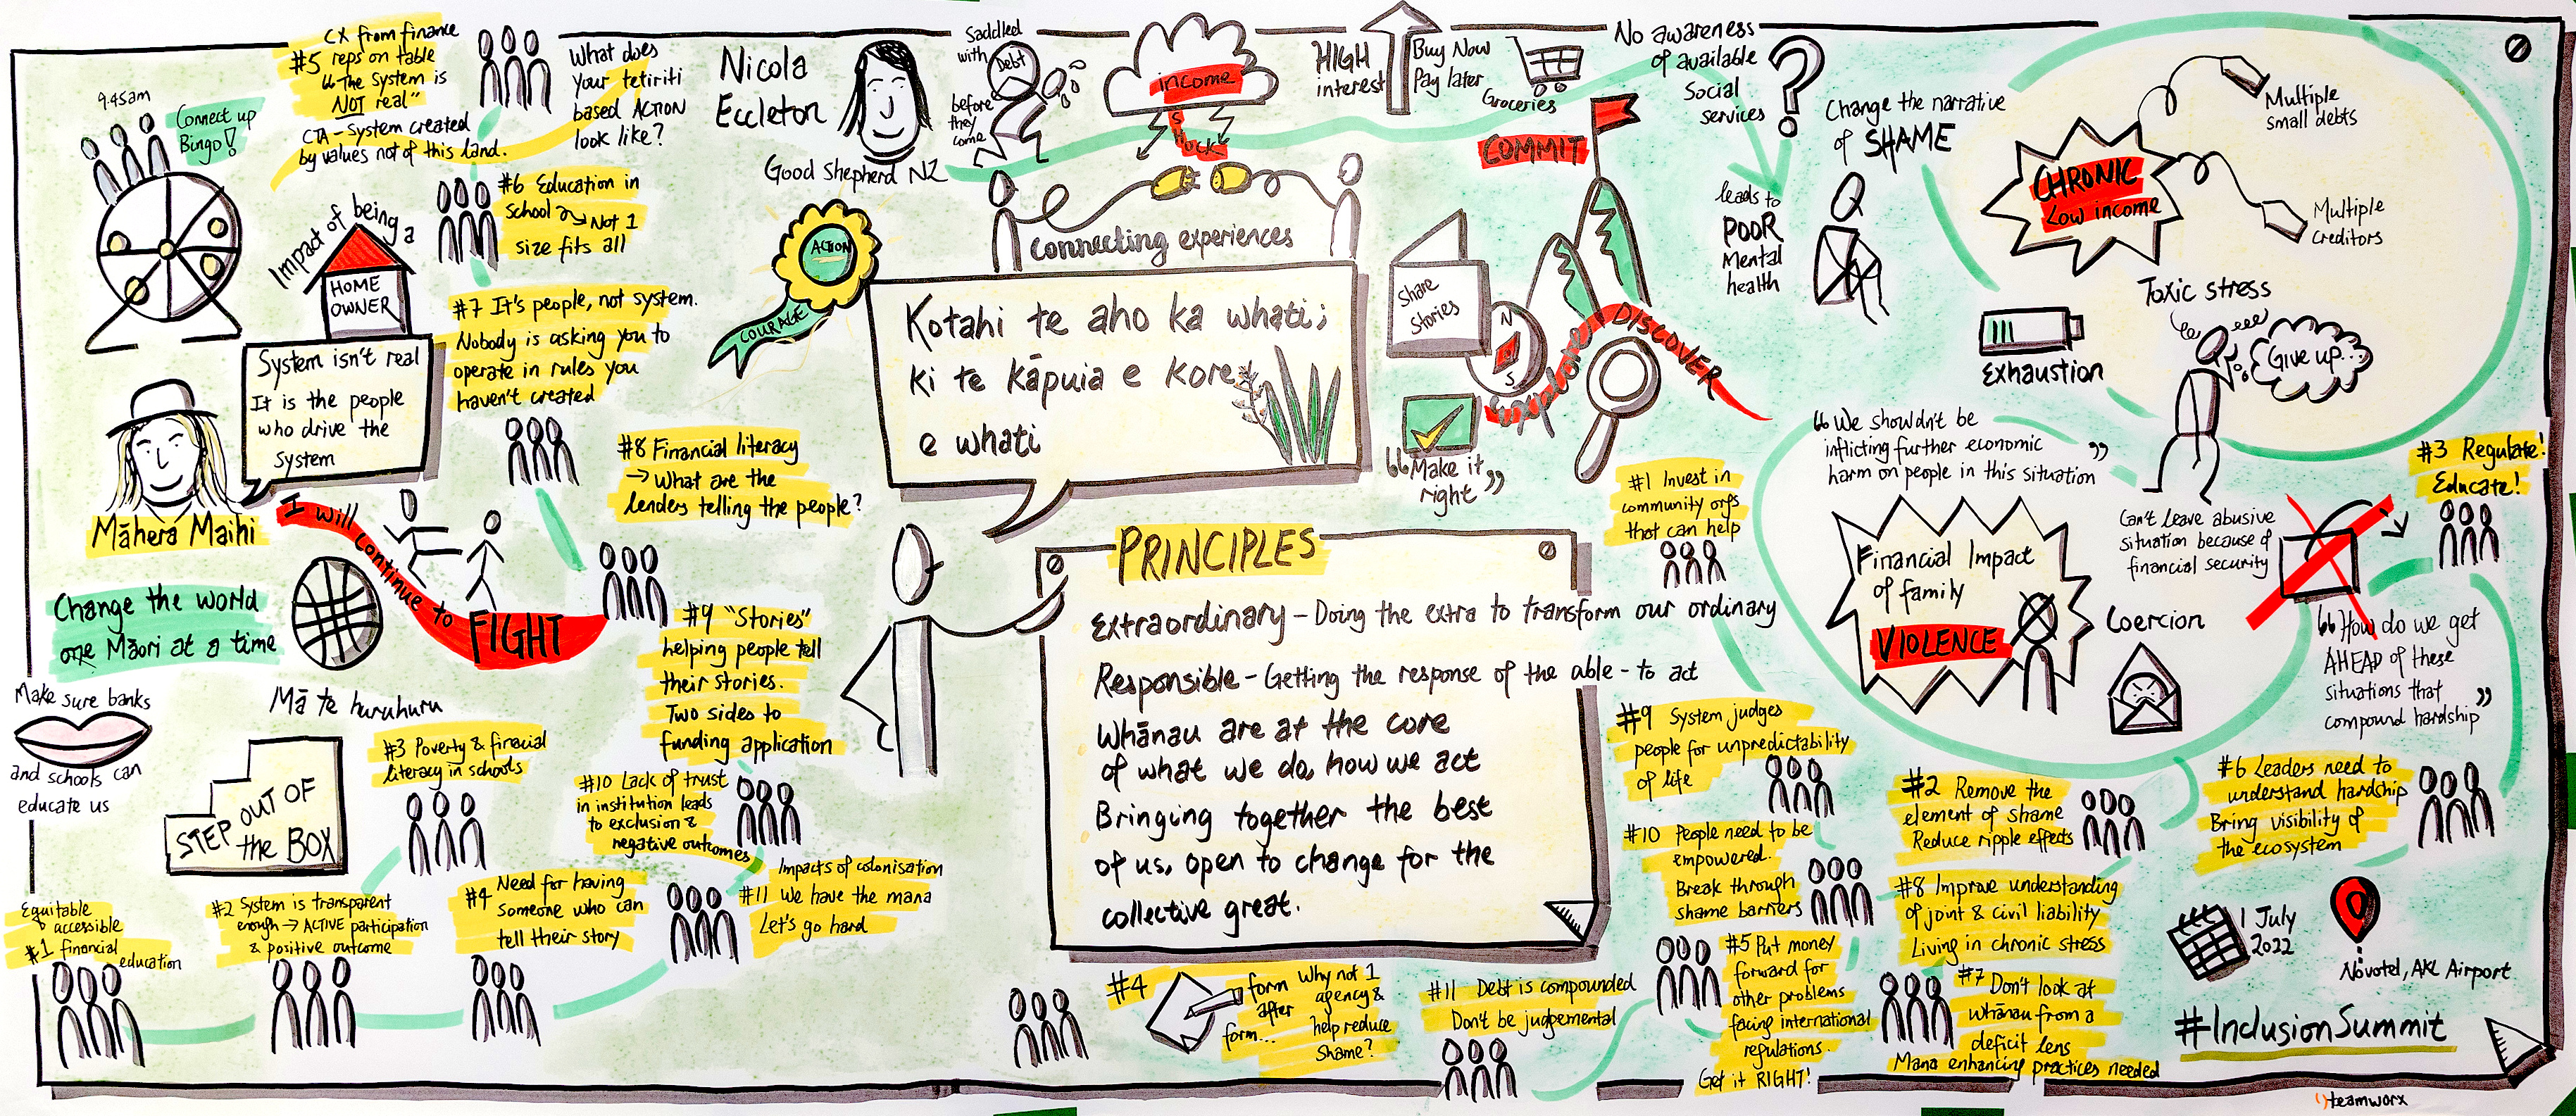 9.45am
Connect up
Bingo!
CX from finance
#5 reps on table
"The System is
NOT real"
CTA - System created
by values not of this land.
What does
your tetiriti
based ACTION
look like?
#6 Education in
school → Not 1
size fits all
Impact of being a
HOME
OWNER
System isn't real
It is the people
who drive the
system
Māhera Maihi
#7 It's people, not system.
Nobody is asking you to
operate in rules you
haven't created
#8 Financial literacy
→ What are the
lenders telling the people?
I will continue to FIGHT
Change the world
one Māori at a time
Mā te huruhuru
Make sure banks
and schools can
educate us
STEP OUT OF
the BOX
#9 "Stories"
helping people tell
their stories.
Two sides to
funding application
#3 Poverty & finacial
literacy in schools
#10 Lack of trust
in institution leads
to exclusion &
negative outcomes
Impacts of colonisation
#11 We have the mana
Let's go hard
Equitable
accessible
#1 financial
education
#2 System is transparent
enough → ACTIVE participation
& positive outcome
#4 Need for having
someone who can
tell their story
Nicola
Eccleton
Good Shepherd NZ
Saddled
with Debt
before
they
come
income
Shock
HIGH
interest
Buy Now
Pay later
Groceries
No awareness
of available
Social
services
leads to
POOR
Mental
health
Change the narrative
of SHAME
CHRONIC
Low income
Multiple
small debts
Multiple
Creditors
Exhaustion
Toxic stress
Give up...
ACTION
COURAGE
Connecting experiences
Kotahi te aho ka whati;
ki te kāpuia e kore
e whati
COMMIT
Share
Stories
N
S
Explore
DISCOVER
"Make it
right"
PRINCIPLES
Extraordinary - Doing the extra to transform our ordinary
Responsible - Getting the response of the able - to act
Whānau are at the core
of what we do, how we act
Bringing together the best
of us, open to change for the
collective great.
#1 Invest in
community orgs
that can help
"We shouldn't be
inflicting further economic
harm on people in this situation"
Financial Impact
of family
VIOLENCE
Can't leave abusive
situation because of
financial security
Coercion
#3 Regulate!
Educate!
"How do we get
AHEAD of these
situations that
compound hardship"
#9 System judges
people for unpredictability
of life
#10 People need to be
empowered.
Break through
shame barriers
#2 Remove the
element of shame
Reduce ripple effects
#6 Leaders need to
understand hardship
Bring visibility of
the ecosystem
#8 Improve understanding
of joint & civil liability
Living in chronic stress
#4
form
after
form...
Why not 1
agency &
help reduce
shame?
#11 Debt is compounded
Don't be judgemental
#5 Put money
forward for
other problems
facing international
regulations.
Get it RIGHT!
#7 Don't look at
whānau from a
deficit lens
Mana enhancing practices needed
1 July
2022
Novotel, AKL Airport
#InclusionSummit
teamworx